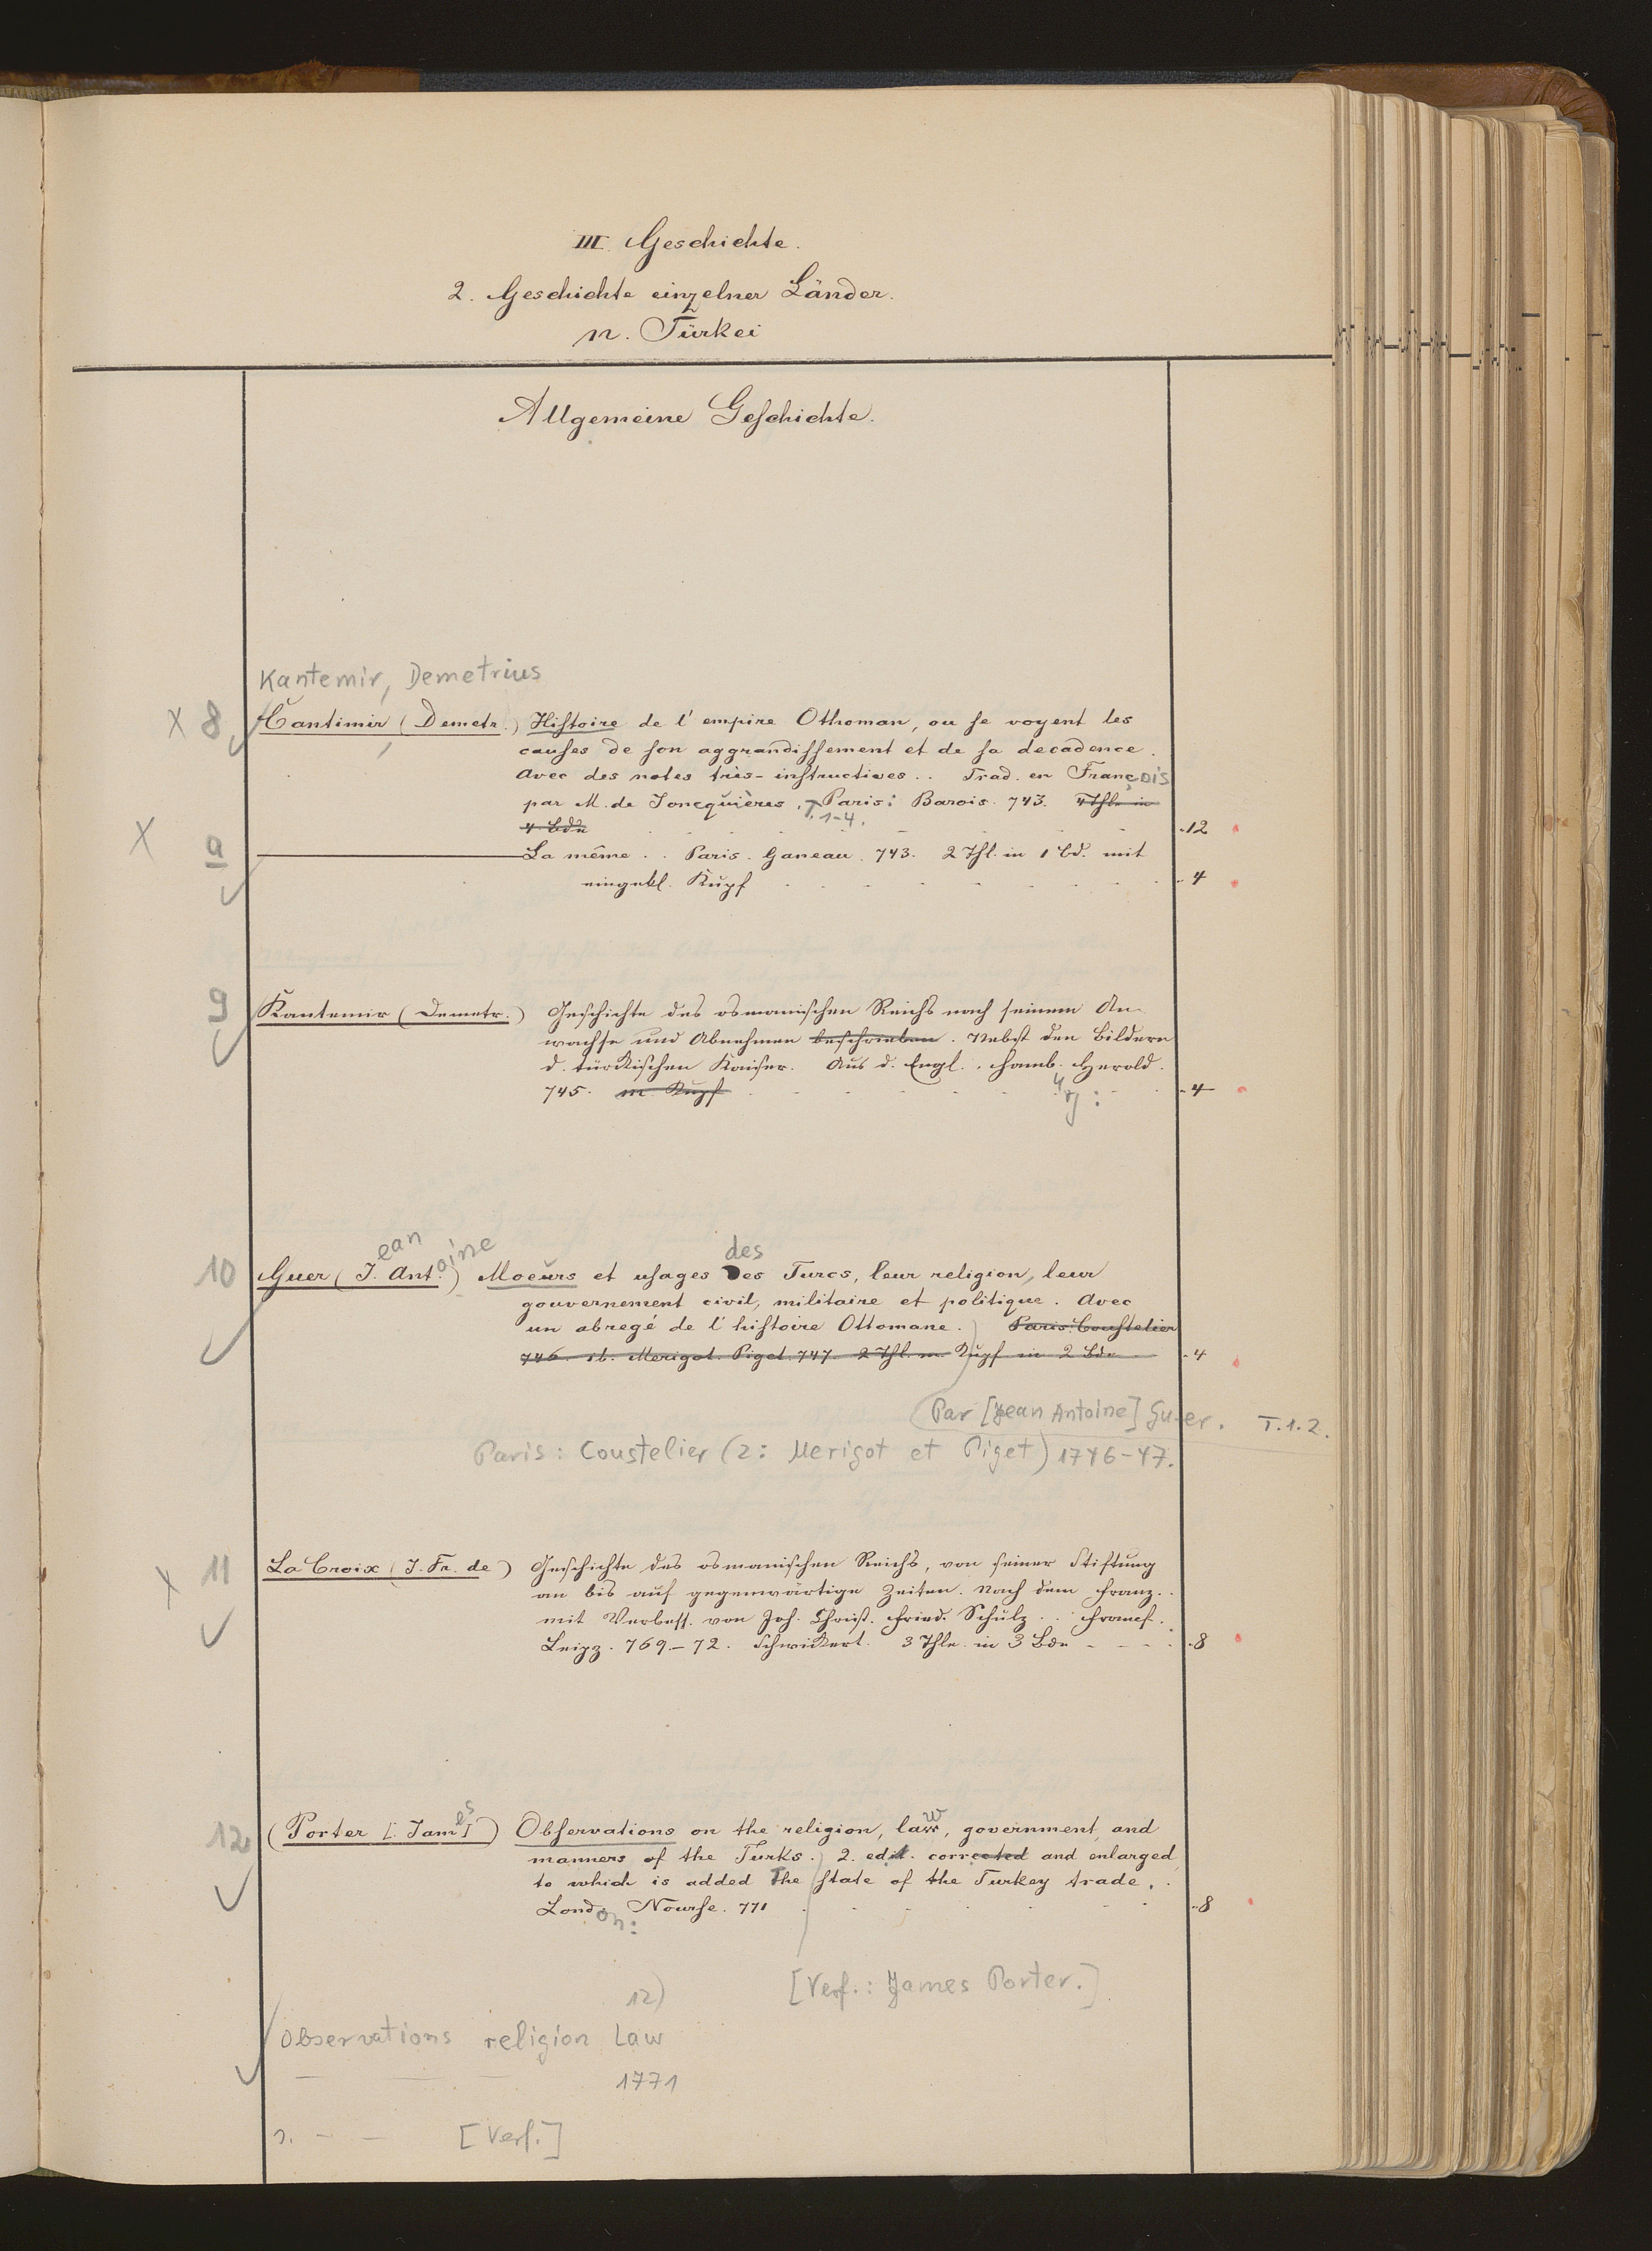 III. Geschichte.
2. Geschichte einzelner Länder.
n. Türkei
Allgemeine Geschichte.
Kantemir, Demetrius
X 8 Cantimir (Demetr.) Histoire de l'empire Othoman, ou se voyent les
causes de son aggrandissement et de sa decadence.
Avec des notes très-instructives .. Trad. en François
par M. de Joncquières. T. 1-4. Paris: Barois. 743. 4 Thle in
4 Bdn - 12
X a La même .. Paris. Ganeau. 743. 2 Thl. in 1 Bd. mit
eingekl. Kupf - 4
9 Kantemir (Demetr.) Geschichte des osmanischen Reichs nach seinem An-
wachse und Abnehmen beschrieben. Nebst den Bildern
d. türkischen Kaiser. Aus d. Engl. . Hamb. Herold.
745. m. Kupf - 4
10 Guer (Jean Antoine) Moeurs et usages des Turcs, leur religion, leur
gouvernement civil, militaire et politique. Avec
un abregé de l'histoire Ottomane. Paris. Coustelier
746. ib. Merigot. Piget. 747. 2 Thl. m. Kupf in 2 Bdn - 4
Par [Jean Antoine] Guer. T. 1.2.
Paris: Coustelier (2: Merigot et Piget) 1746-47.
X 11 La Croix (J. Fr. de) Geschichte des osmanischen Reichs, von seiner Stiftung
an bis auf gegenwärtige Zeiten. Nach dem Franz.
mit Verbess. von Joh. Christ. Fried. Schulz .. Francf.
Leipz. 769-72. Schwickert. 3 Thle. in 3 Bdn - 8
12 (Porter [James]) Observations on the religion, law, government, and
manners of the Turks. 2. edit. corrected and enlarged
to which is added The state of the Turkey trade. .
London: Nourse. 771 - 8
[Verf.: James Porter.]
12)
Observations religion Law
1771
[Verf.]